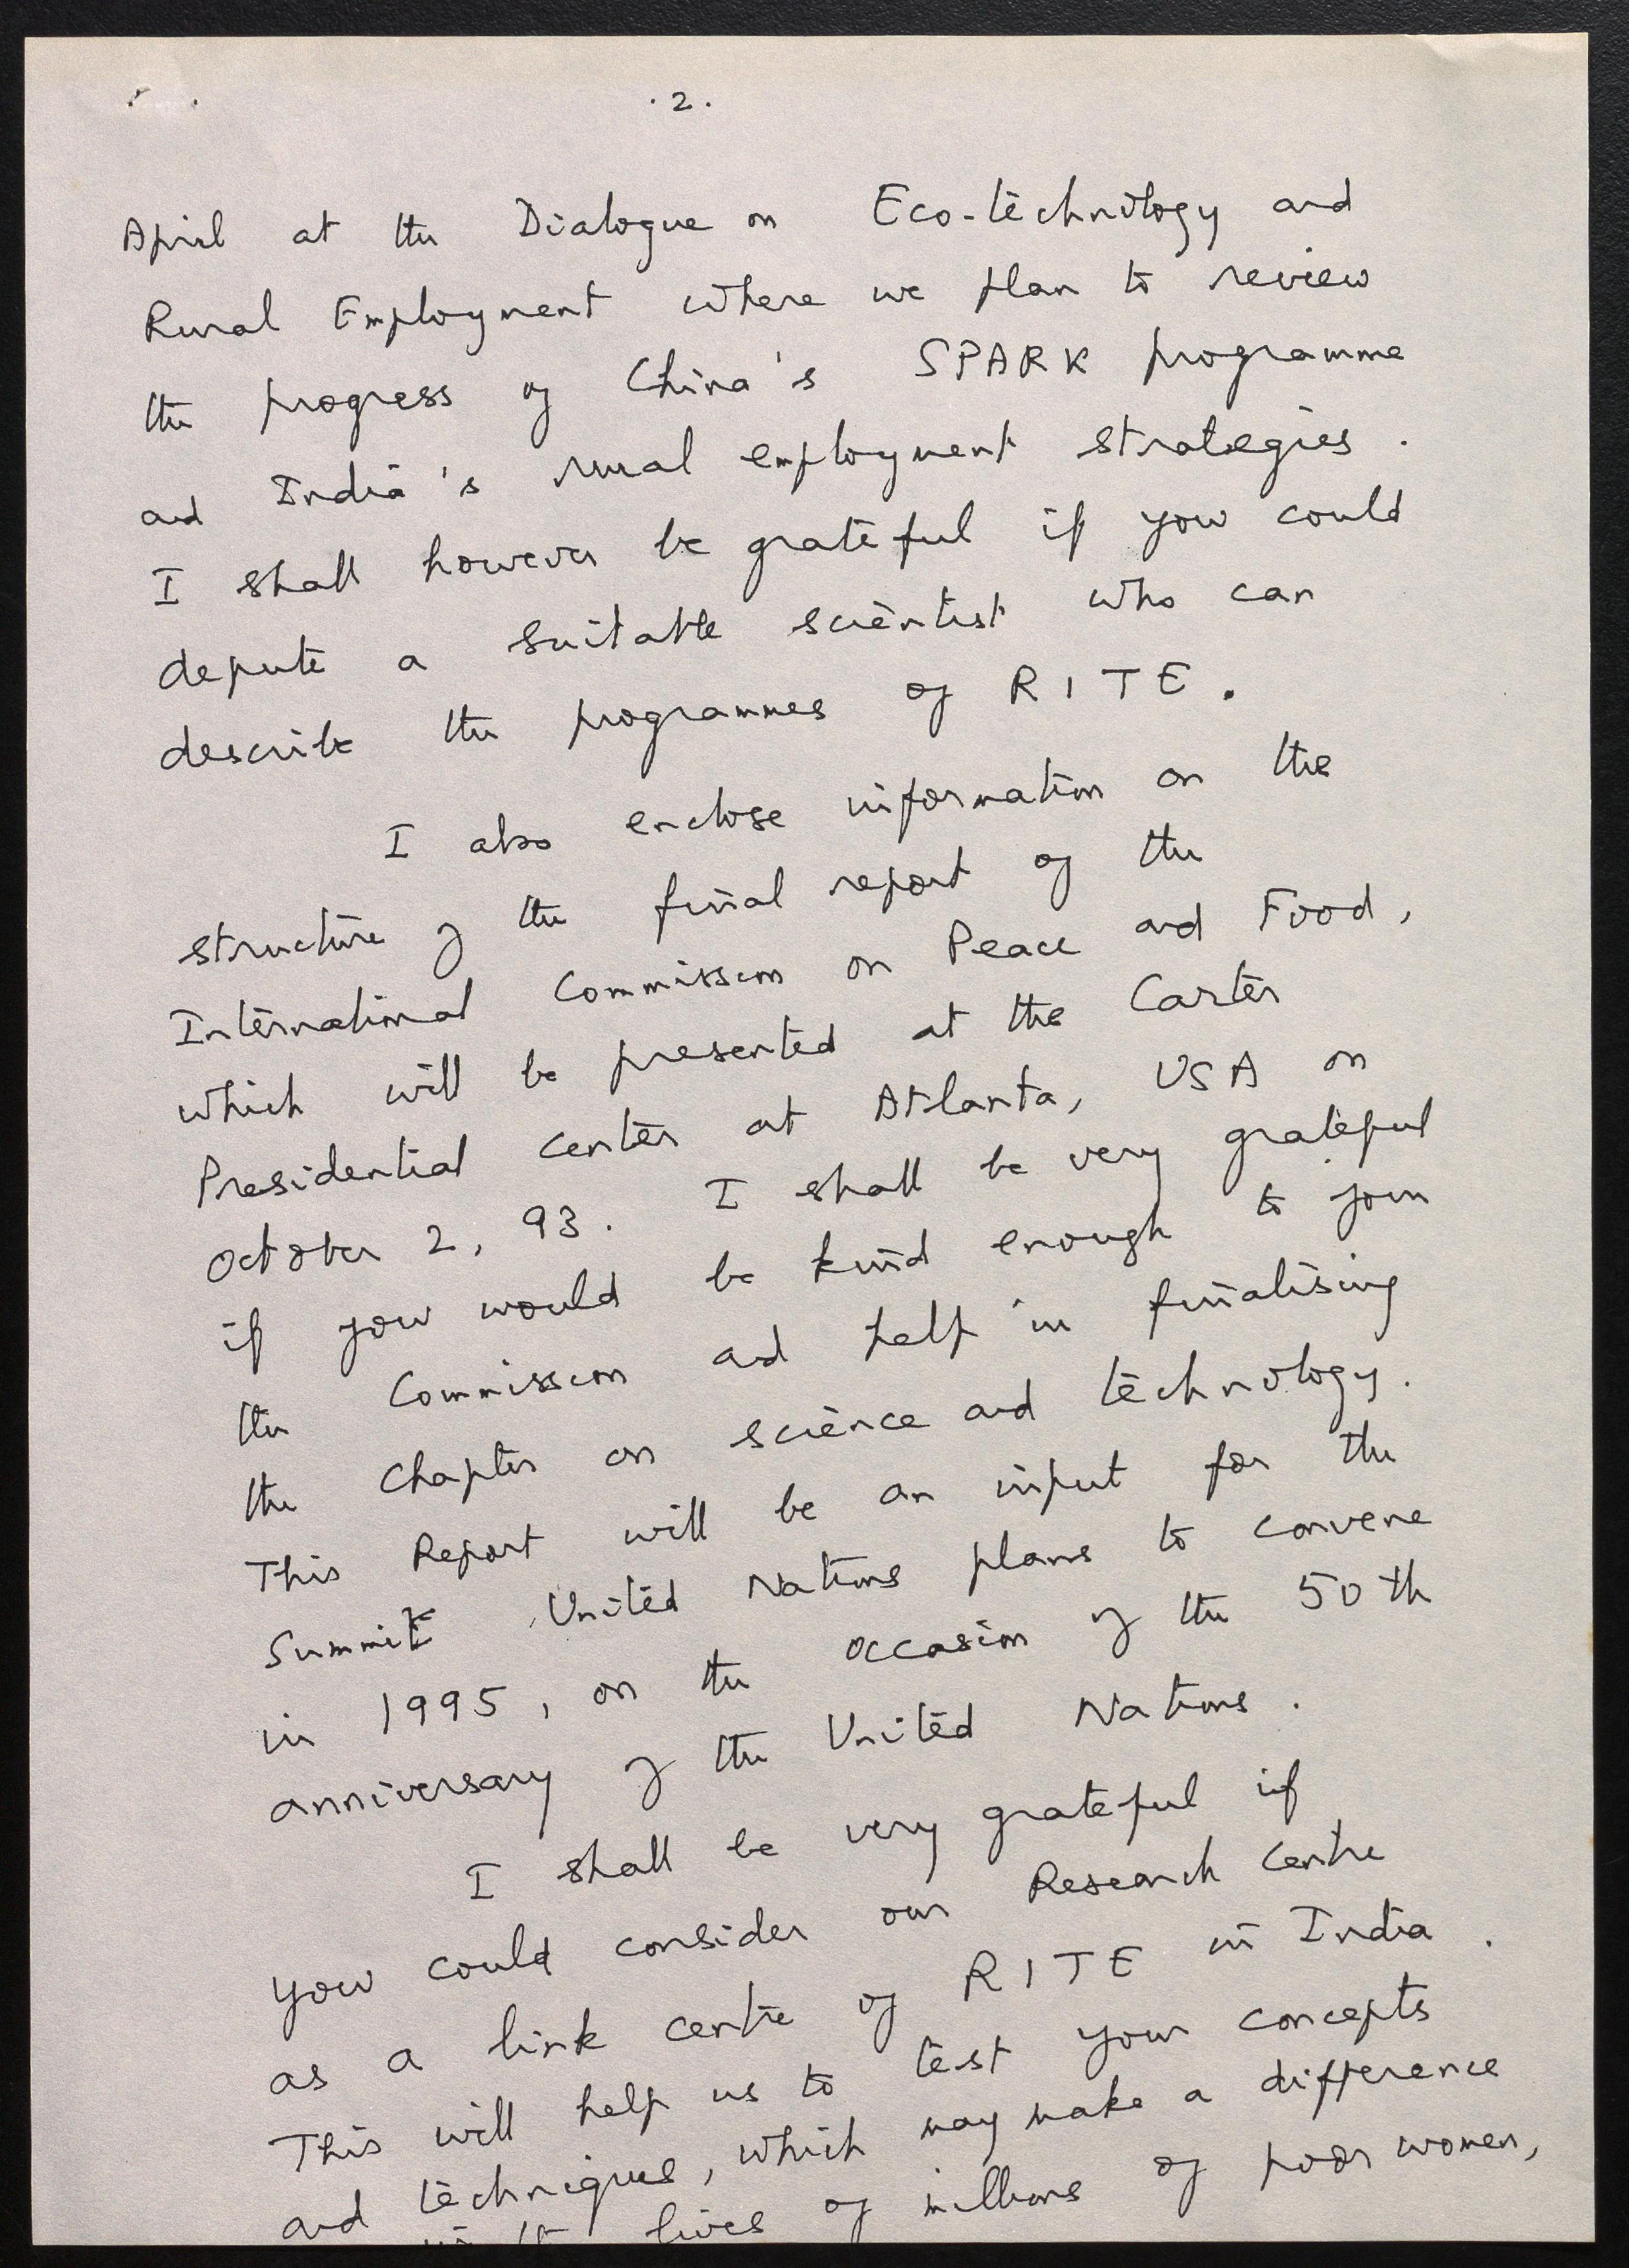 . 2 .
April at the Dialogue on Eco-technology and
Rural Employment where we plan to review
the progress of China's SPARK programme
and India's rural employment strategies.
I shall however be grateful if you could
depute a suitable scientist who can
describe the programmes of RITE.
I also enclose information on the
structure of the final report of the
International Commission on Peace and Food,
which will be presented at the Carter
Presidential Center at Atlanta, USA on
October 2, 93. I shall be very grateful
if you would be kind enough to join
the Commission and help in finalising
the chapter on science and technology.
This Report will be an input for the
Summit United Nations plans to convene
in 1995, on the occasion of the 50th
anniversary of the United Nations.
I shall be very grateful if
you could consider our Research Centre
as a link centre of RITE in India.
This will help us to test your concepts
and techniques, which may make a difference
in the lives of millions of poor women,